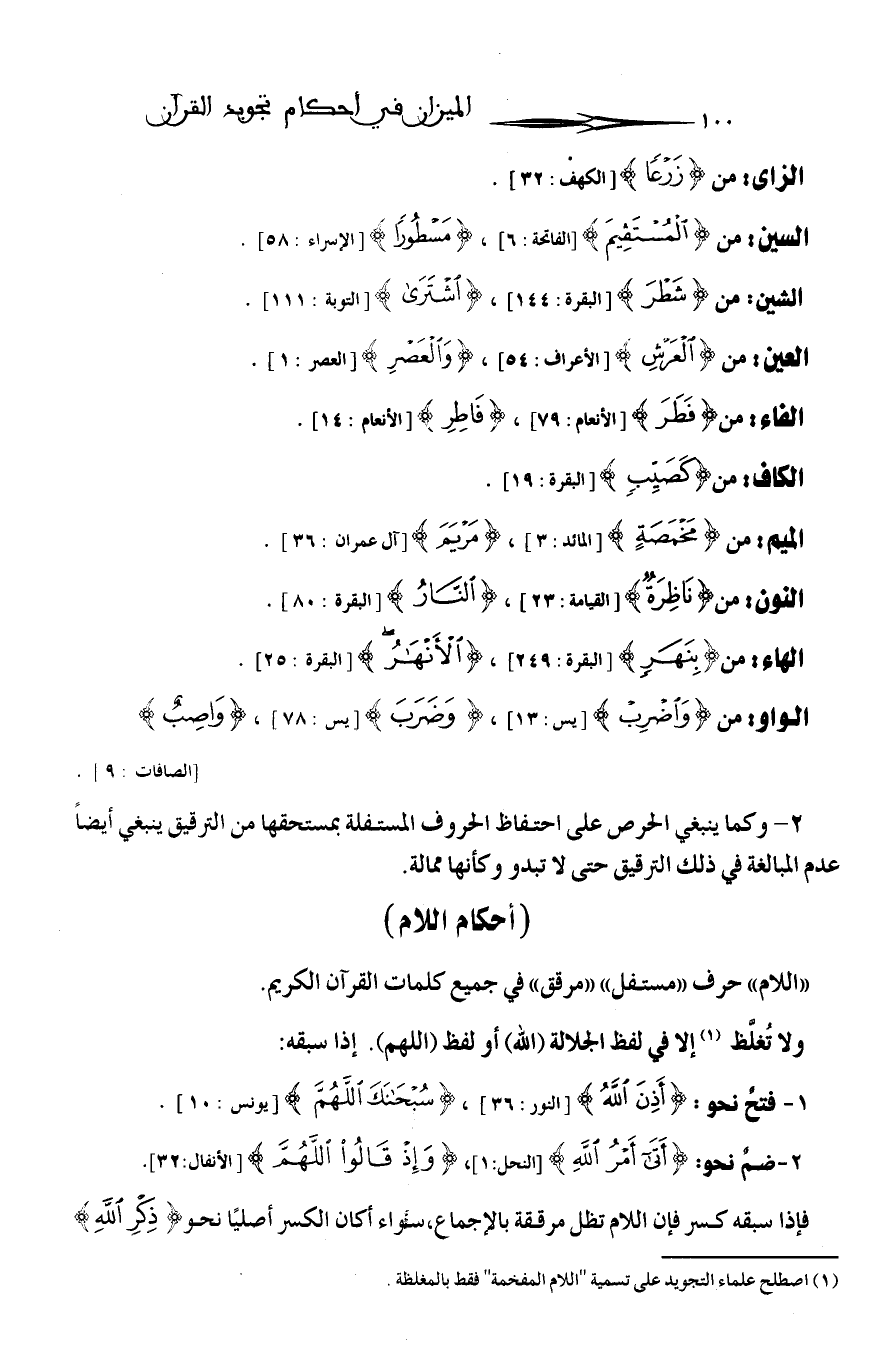 ١٠٠ الميزان في أحكام تجويد القرآن
الزاى: من ﴿ زَرْعًا ﴾ [الكهف: ٣٢] .
السين: من ﴿ ٱلْمُسْتَقِيمَ ﴾ [الفاتحة: ٦] ، ﴿ مَسْطُورًا ﴾ [الإسراء : ٥٨] .
الشين: من ﴿ شَطْرَ ﴾ [البقرة: ١٤٤] ، ﴿ ٱشْتَرَىٰ ﴾ [التوبة : ١١١] .
العين: من ﴿ ٱلْعَرْشِ ﴾ [الأعراف: ٥٤] ، ﴿ وَٱلْعَصْرِ ﴾ [العصر : ١] .
الفاء: من﴿ فَطَرَ ﴾ [الأنعام: ٧٩] ، ﴿ فَاطِرِ ﴾ [الأنعام : ١٤] .
الكاف: من﴿ كَصَيِّبٍ ﴾ [البقرة: ١٩] .
الميم: من ﴿ مَخْمَصَةٍ ﴾ [المائد: ٣] ، ﴿ مَرْيَمَ ﴾ [آل عمران : ٣٦] .
النون: من﴿ نَاظِرَةٌ ﴾ [القيامة: ٢٣] ، ﴿ ٱلنَّارُ ﴾ [البقرة : ٨٠] .
الهاء: من﴿ بِنَهَرٍ ﴾ [البقرة: ٢٤٩] ، ﴿ ٱلْأَنْهَـٰرُ ۖ ﴾ [البقرة : ٢٥] .
الواو: من ﴿ وَٱضْرِبْ ﴾ [يس: ١٣] ، ﴿ وَضَرَبَ ﴾ [يس : ٧٨] ، ﴿ وَاصِبٌ ﴾
[الصافات : ٩] .
٢- وكما ينبغي الحرص على احتفاظ الحروف المستفلة بمستحقها من الترقيق ينبغي أيضاً
عدم المبالغة في ذلك الترقيق حتى لا تبدو وكأنها ممالة.
(أحكام اللام)
«اللام» حرف «مستفل» «مرقق» في جميع كلمات القرآن الكريم.
ولا تُغلَّظ (١) إلا في لفظ الجلالة (الله) أو لفظ (اللهم). إذا سبقه:
١- فتحٌ نحو : ﴿ أَذِنَ ٱللَّهُ ﴾ [النور: ٣٦] ، ﴿ سُبْحَـٰنَكَ ٱللَّهُمَّ ﴾ [يونس : ١٠] .
٢-ضمٌ نحو: ﴿ أَتَىٰٓ أَمْرُ ٱللَّهِ ﴾ [النحل:١]، ﴿ وَإِذْ قَالُوا۟ ٱللَّهُمَّ ﴾ [الأنفال:٣٢].
فإذا سبقه كسر فإن اللام تظل مرققة بالإجماع،سواء أكان الكسر أصليًا نحو﴿ ذِكْرِ ٱللَّهِ ﴾
(١) اصطلح علماء التجويد على تسمية "اللام المفخمة" فقط بالمغلظة .